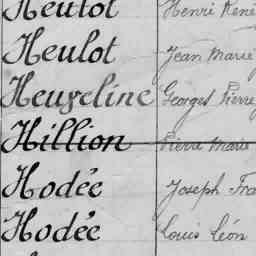 Heulot Henri René
Heulot Jean Marie
Heuzeline Georges Pierre
Hillion Pierre Marie
Hodée Joseph Fra
Hodée Louis Léon